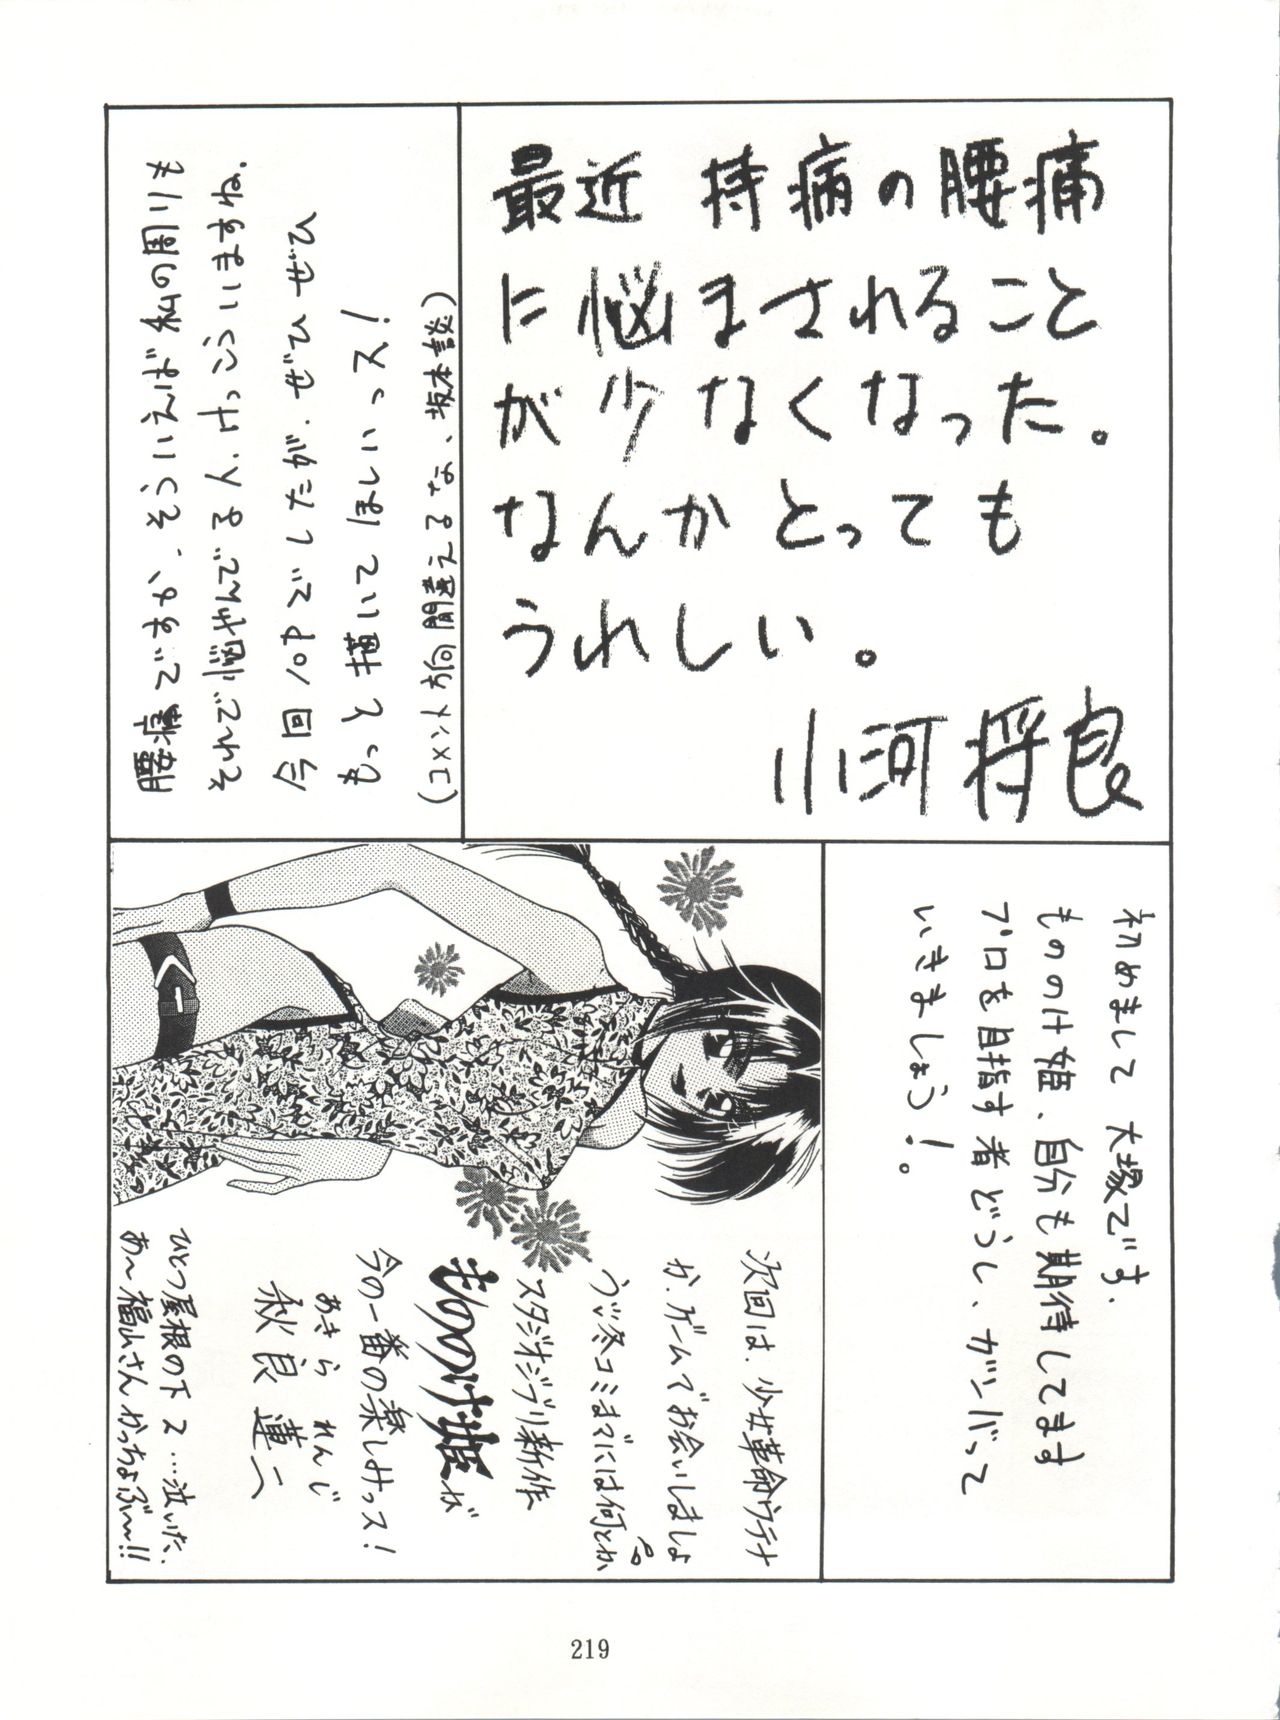 最近 持病の腰痛
に悩まされること
が少なくなった。
なんかとっても
うれしい。
小河将良
腰痛ですか、そういえば私の周りも
それで悩やんでる人、けっこういますね.
今回10Pでしたが、ぜひぜひ
もっと描いてほしいっス!
(コメント方向間違えるな、坂本談)
初めまして 大塚です.
もののけ姫、自分も期待してます
プロを目指す者どうし、ガンバって
いきましょう!。
次回は、少女革命ウテナ
か、ゲームでお会いしましょ
う。冬コミまでには何とか
スタジオジブリ新作
もののけ姫が
今の一番の楽しみっス!
あきら れんじ
秋良 蓮二
ひとつ屋根の下2…泣いた.
あ〜福山さんかっちょぶ〜!!
219